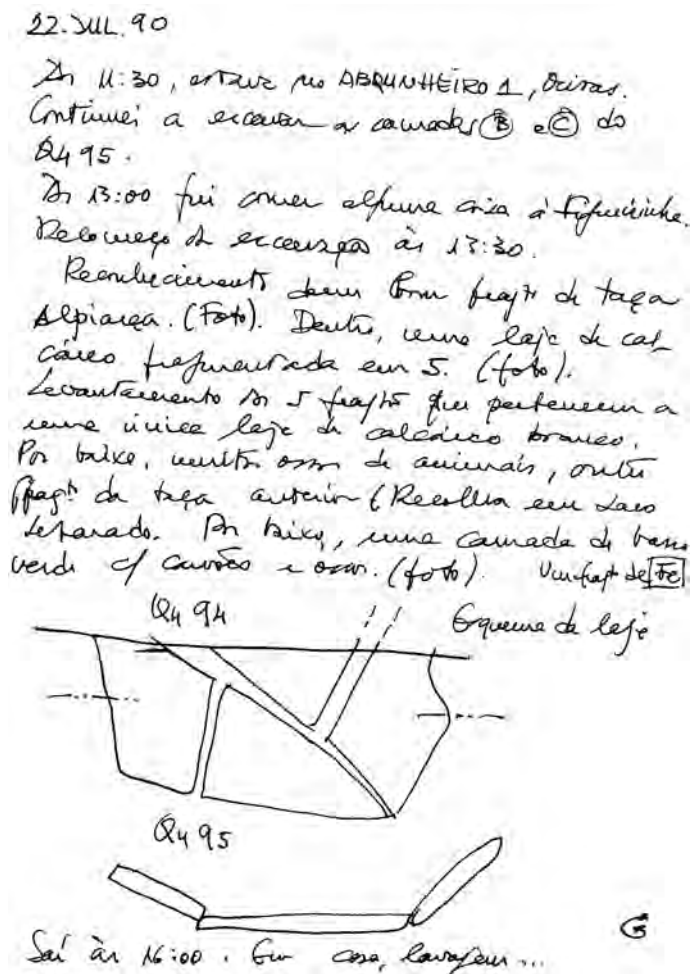 22.JUL.90
Às 11:30, estava no ABRUNHEIRO 1, Oeiras.
Continuei a escavar as camadas B e C do
Q4 95.
Às 13:00 fui comer alguma coisa à Figueirinha.
Recomeço da escavação às 13:30.
Reconhecimento dum bom fragto de taça
Alpiarça. (Foto). Dentro, uma laje de cal_
cáreo fragmentada em 5. (foto).
Levantamento dos 5 fragtos que pertencem a
uma única laje de calcáreo branco.
Por baixo, muitos ossos de animais, outro
fragto da taça anterior (Recolha em saco
separado. Por baixo, uma camada de barro
verde c/ carvões e ossos. (foto). Um fragto de Fe
Q4 94
Esquema da laje
Q4 95
G
Saí às 16:00. Em casa, lavagem...